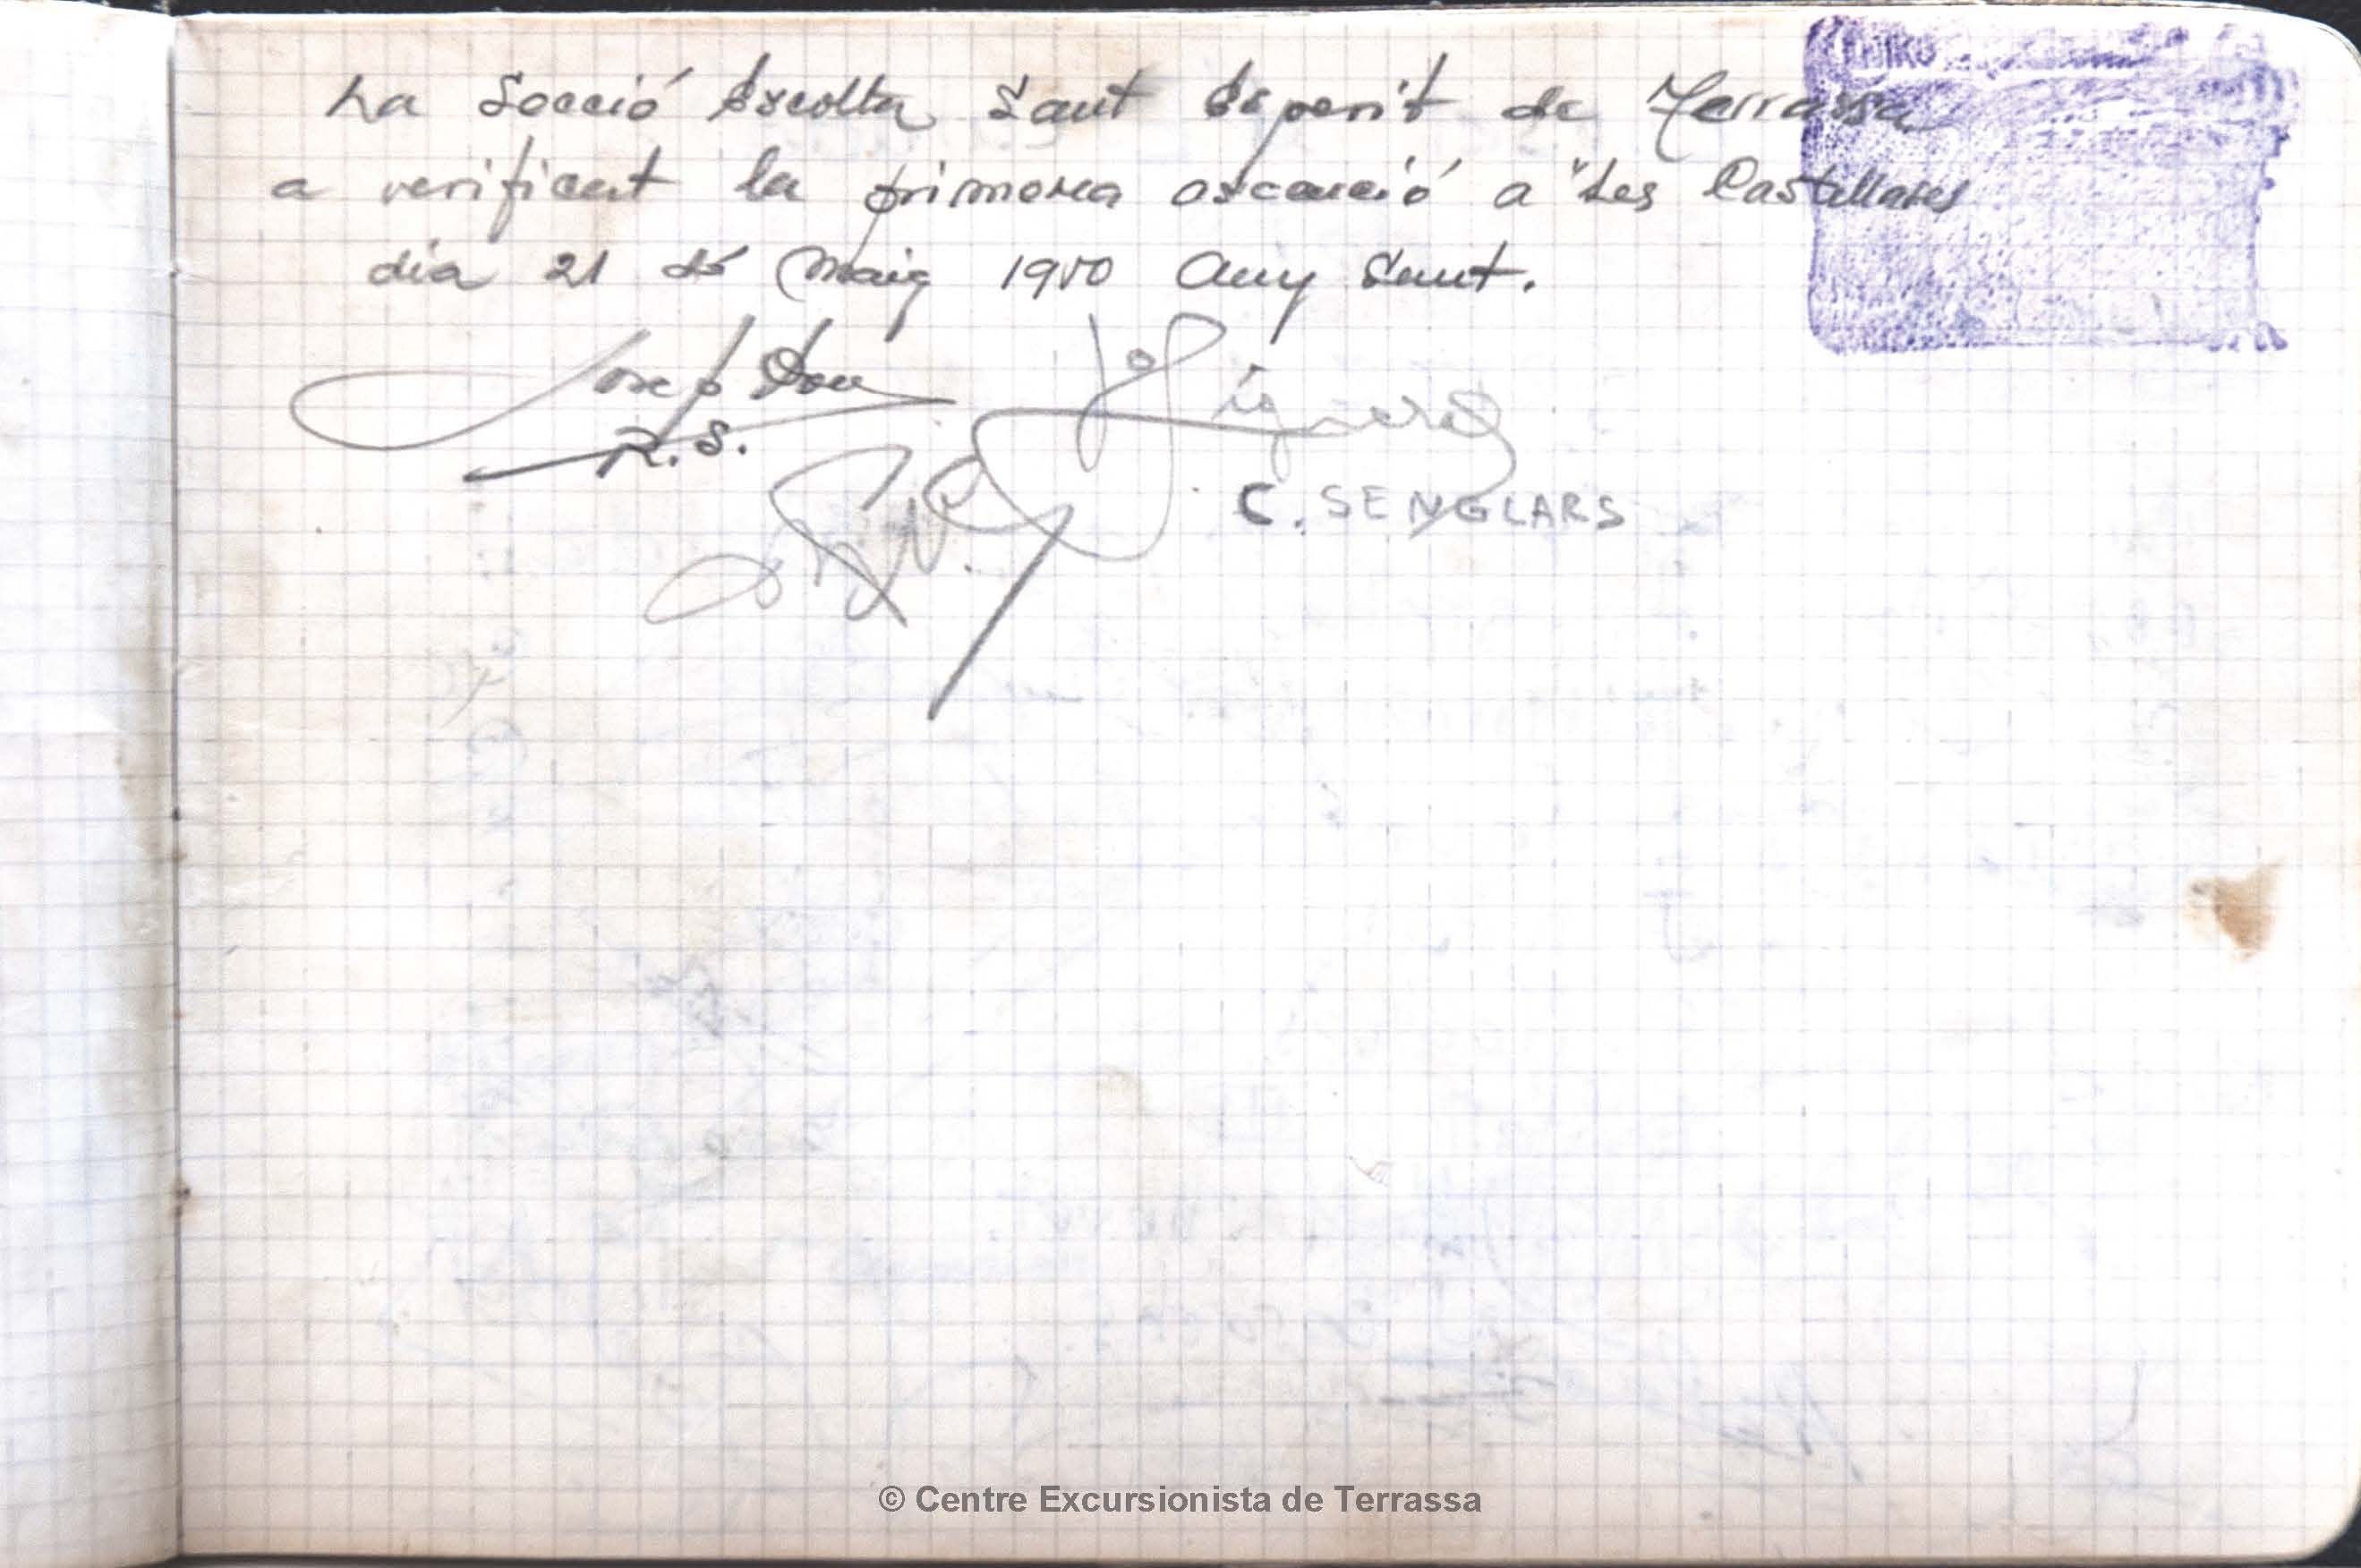 La Secció Escolta Sant Esperit de Terrassa
a verificat la primera ascenció a "Les Castellases
dia 21 de Maig 1950 Any Sant.
Josep Dou
R.S.
C. SENGLARS
© Centre Excursionista de Terrassa